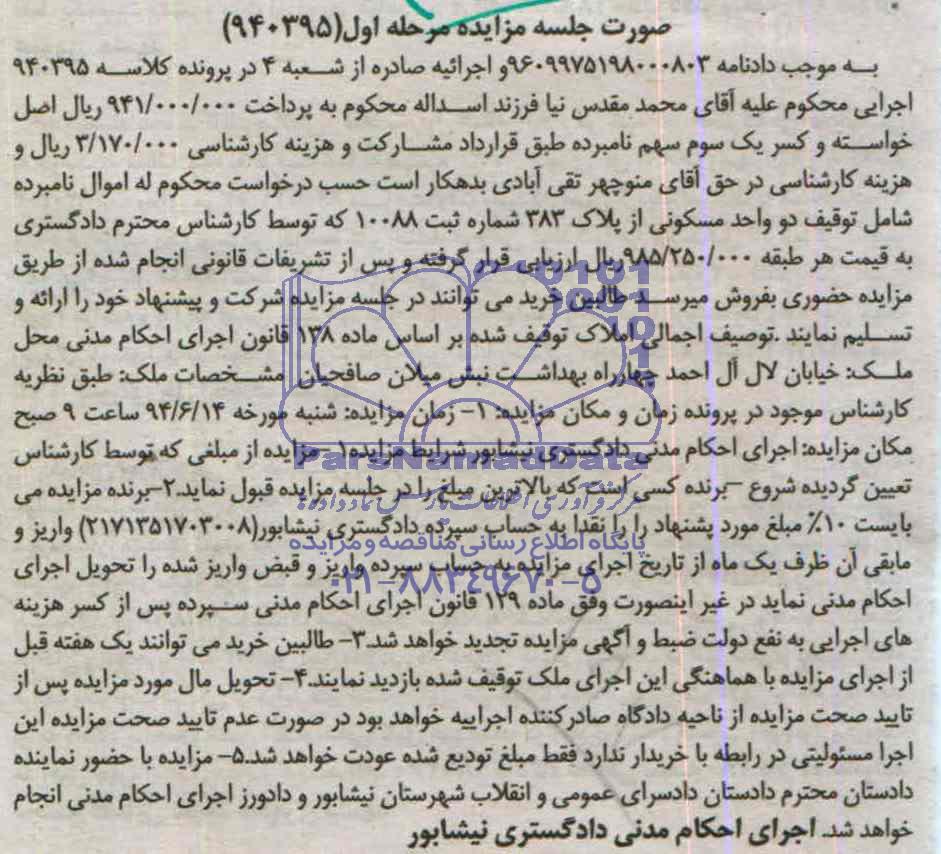 صورت جلسه مزایده مرحله اول(۹۴۰۳۹۵)
به موجب دادنامه ۹۶۰۹۹۷۵۱۹۸۰۰۰۸۰۳و اجرائیه صادره از شعبه ۴ در پرونده کلاسه ۹۴۰۳۹۵
اجرایی محکوم علیه آقای محمد مقدس نیا فرزند اسداله محکوم به پرداخت ۹۴۱/۰۰۰/۰۰۰ ریال اصل
خواسته و کسر یک سوم سهم نامبرده طبق قرارداد مشارکت و هزینه کارشناسی ۳/۱۷۰/۰۰۰ ریال و
هزینه کارشناسی در حق آقای منوچهر تقی آبادی بدهکار است حسب درخواست محکوم له اموال نامبرده
شامل توقیف دو واحد مسکونی از پلاک ۳۸۳ شماره ثبت ۱۰۰۸۸ که توسط کارشناس محترم دادگستری
به قیمت هر طبقه ۹۸۵/۲۵۰/۰۰۰ریال ارزیابی قرار گرفته و پس از تشریفات قانونی انجام شده از طریق
مزایده حضوری بفروش میرسد طالبین خرید می توانند در جلسه مزایده شرکت و پیشنهاد خود را ارائه و
تسلیم نمایند .توصیف اجمالی املاک توقیف شده بر اساس ماده ۱۳۸ قانون اجرای احکام مدنی محل
ملک: خیابان لال آل احمد چهارراه بهداشت نبش میلان صافحیان مشخصات ملک: طبق نظریه
کارشناس موجود در پرونده زمان و مکان مزایده: ۱- زمان مزایده: شنبه مورخه ۹۴/۶/۱۴ ساعت ۹ صبح
مکان مزایده: اجرای احکام مدنی دادگستری نیشابور شرایط مزایده۱- مزایده از مبلغی که توسط کارشناس
ParsNamadData
تعیین گردیده شروع –برنده کسی است که بالاترین مبلغ را در جلسه مزایده قبول نماید.۲-برنده مزایده می
مرکز فرآوری اطلاعات پارس نماد داده ها
بایست ۱۰٪ مبلغ مورد پشنهاد را را نقدا به حساب سپرده دادگستری نیشابور(۲۱۷۱۳۵۱۷۰۳۰۰۸) واریز و
پایگاه اطلاع رسانی مناقصه و مزایده
مابقی آن ظرف یک ماه از تاریخ اجرای مزایده به حساب سپرده واریز و قبض واریز شده را تحویل اجرای
۰۲۱-۸۸۳۴۹۶۷۰-۵
احکام مدنی نماید در غیر اینصورت وفق ماده ۱۲۹ قانون اجرای احکام مدنی سپرده پس از کسر هزینه
های اجرایی به نفع دولت ضبط و آگهی مزایده تجدید خواهد شد.۳- طالبین خرید می توانند یک هفته قبل
از اجرای مزایده با هماهنگی این اجرای ملک توقیف شده بازدید نمایند.۴- تحویل مال مورد مزایده پس از
تایید صحت مزایده از ناحیه دادگاه صادرکننده اجراییه خواهد بود در صورت عدم تایید صحت مزایده این
اجرا مسئولیتی در رابطه با خریدار ندارد فقط مبلغ تودیع شده عودت خواهد شد.۵- مزایده با حضور نماینده
دادستان محترم دادستان دادسرای عمومی و انقلاب شهرستان نیشابور و دادورز اجرای احکام مدنی انجام
خواهد شد. اجرای احکام مدنی دادگستری نیشابور